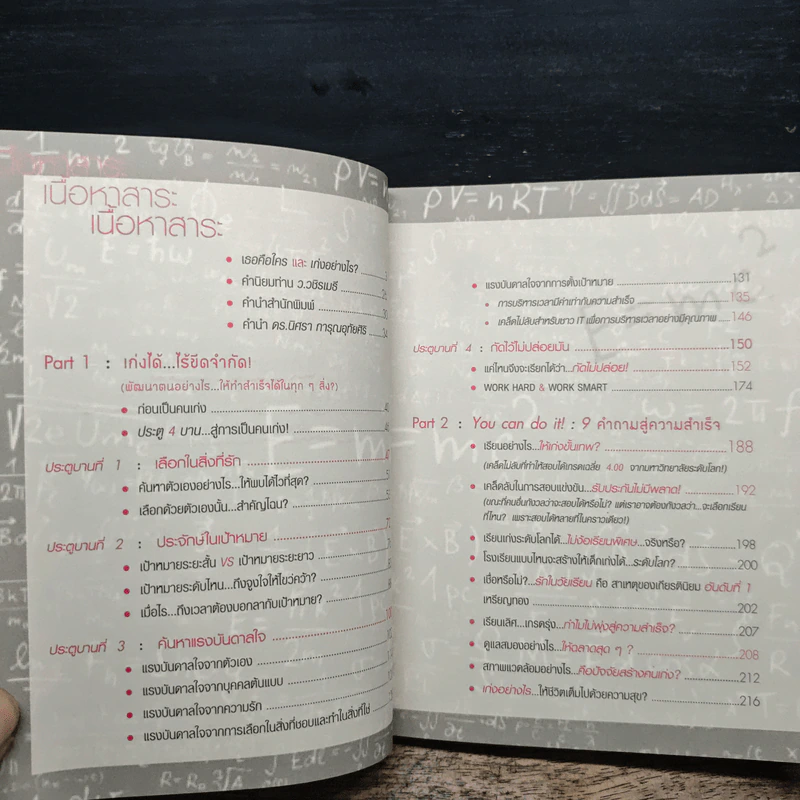 เนื้อหาสาระ
เนื้อหาสาระ
• เธอคือใคร และ เก่งอย่างไร?
• คำนิยมท่าน ว.วชิรเมธี
• คำนำสำนักพิมพ์
• คำนำ ดร.นิศรา การุณอุทัยศิริ
Part 1 : เก่งได้...ไร้ขีดจำกัด!
(พัฒนาตนอย่างไร...ให้ทำสำเร็จได้ในทุก ๆ สิ่ง?)
• ก่อนเป็นคนเก่ง
• ประตู 4 บาน...สู่การเป็นคนเก่ง!
ประตูบานที่ 1 : เลือกในสิ่งที่รัก
• ค้นหาตัวเองอย่างไร...ให้พบได้ไวที่สุด?
• เลือกด้วยตัวเองนั้น...สำคัญไฉน?
ประตูบานที่ 2 : ประจักษ์ในเป้าหมาย
• เป้าหมายระยะสั้น VS เป้าหมายระยะยาว
• เป้าหมายระดับไหน...ถึงจูงใจให้ไขว่คว้า?
• เมื่อไร...ถึงเวลาต้องบอกลากับเป้าหมาย?
ประตูบานที่ 3 : ค้นหาแรงบันดาลใจ
• แรงบันดาลใจจากตัวเอง
• แรงบันดาลใจจากบุคคลต้นแบบ
• แรงบันดาลใจจากความรัก
• แรงบันดาลใจจากการเลือกในสิ่งที่ชอบและทำในสิ่งที่ใช่
• แรงบันดาลใจจากการตั้งเป้าหมาย 131
• การบริหารเวลามีค่าเท่ากับความสำเร็จ 135
• เคล็ดไม่ลับสำหรับชาว IT เพื่อการบริหารเวลาอย่างมีคุณภาพ 146
ประตูบานที่ 4 : กัดไว้ไม่ปล่อยมัน 150
• แค่ไหนจึงจะเรียกได้ว่า...กัดไม่ปล่อย! 152
• WORK HARD & WORK SMART 174
Part 2 : You can do it! : 9 คำถามสู่ความสำเร็จ
• เรียนอย่างไร...ให้เก่งขั้นเทพ? 188
(เคล็ดไม่ลับที่ทำให้สอบได้เกรดเฉลี่ย 4.00 จากมหาวิทยาลัยระดับโลก!)
• เคล็ดลับในการสอบแข่งขัน...รับประกันไม่มีพลาด! 192
(ขณะที่คนอื่นกังวลว่าจะสอบได้หรือไม่? แต่เราอาจต้องกังวลว่า...จะเลือกเรียน
ที่ไหน? เพราะสอบได้หลายที่ในคราวเดียว!)
• เรียนเก่งระดับโลกได้...ไม่ง้อเรียนพิเศษ...จริงหรือ? 198
• โรงเรียนแบบไหนจะสร้างให้เด็กเก่งได้...ระดับโลก? 200
• เชื่อหรือไม่?...รักในวัยเรียน คือ สาเหตุของเกียรตินิยม อันดับที่ 1
เหรียญทอง 202
• เรียนเลิศ...เกรดรุ่ง...ทำไมไม่พุ่งสู่ความสำเร็จ? 207
• ดูแลสมองอย่างไร...ให้ฉลาดสุด ๆ ? 208
• สภาพแวดล้อมอย่างไร...คือปัจจัยสร้างคนเก่ง? 212
• เก่งอย่างไร...ให้ชีวิตเต็มไปด้วยความสุข? 216